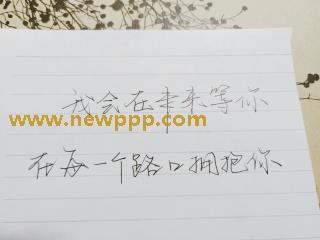 我会在未来等你
www.newppp.com
在每一个路口拥抱你